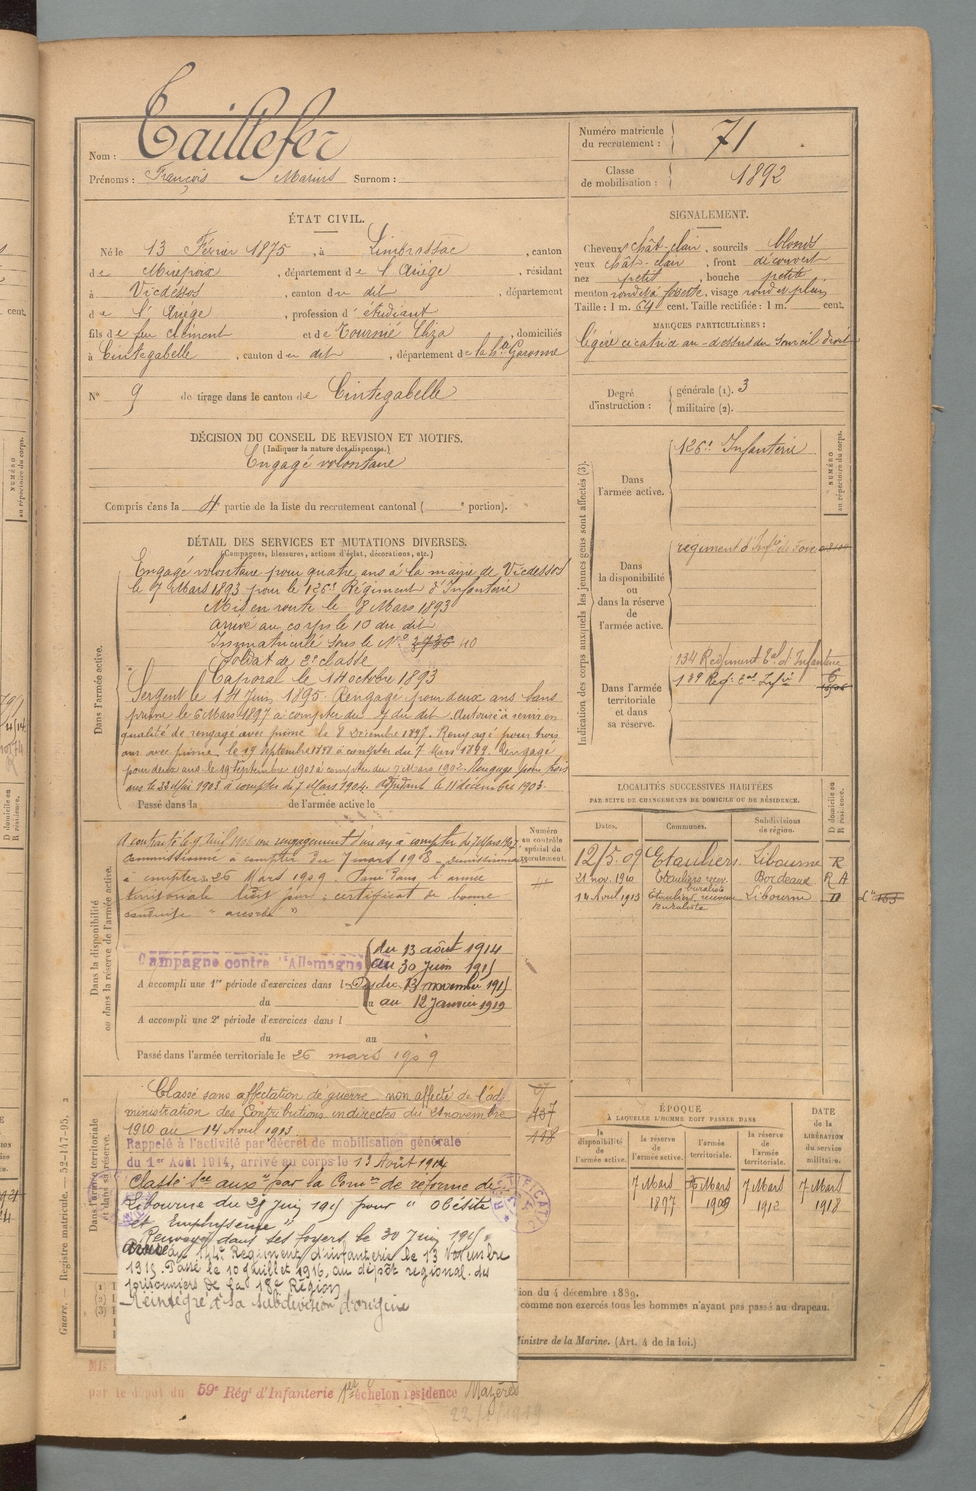 Taillefer
Nom :
Prénoms : François Marius Surnom :
Numéro matricule du recrutement : 71
Classe de mobilisation : 1892
ÉTAT CIVIL.
Né le 13 Février 1875, à Limbrassac, canton
de Mirepoix, département de l'Ariège, résidant
à Vicdessos, canton du dit, département
de l'Ariège, profession d'étudiant
fils de feu Clément et de Tournié Eliza, domiciliés
à Cintegabelle, canton du dit, département de la Hte Garonne
N° 9 de tirage dans le canton de Cintegabelle
SIGNALEMENT.
Cheveux chât-clair, sourcils blonds
yeux chât-clair, front découvert
nez petit, bouche petite
menton rond et à fossette, visage rond et plein
Taille : 1 m. 64 cent. Taille rectifiée : 1 m. cent.
MARQUES PARTICULIÈRES :
légère cicatrice au-dessus du sourcil droit
Degré d'instruction : générale (1). 3
militaire (2).
DÉCISION DU CONSEIL DE REVISION ET MOTIFS.
(Indiquer la nature des dispenses.)
Engagé volontaire
Compris dans la 4 partie de la liste du recrutement cantonal ( e portion).
DÉTAIL DES SERVICES ET MUTATIONS DIVERSES.
(Campagnes, blessures, actions d'éclat, décorations, etc.)
Dans l'armée active.
Engagé volontaire pour quatre ans à la mairie de Vicdessos
le 7 Mars 1893 pour le 126e Régiment d'Infanterie
Mis en route le 8 Mars 1893
Arrivé au corps le 10 du dit
Immatriculé sous le N° 3736 40
Soldat de 2e classe
Caporal le 14 octobre 1893
Sergent le 14 Juin 1895. Rengagé pour deux ans sans
prime le 6 Mars 1897 à compter du 7 du dit. Autorisé à servir en
qualité de rengagé avec prime le 8 Décembre 1897. Rengagé pour trois
ans avec prime le 19 Septembre 1898 à compter du 7 Mars 1899. Rengagé
pour deux ans le 19 Septembre 1901 à compter du 7 Mars 1902. Rengagé pour trois
ans le 23 Mai 1903 à compter du 7 Mars 1904. Adjudant le 11 décembre 1903.
Passé dans la de l'armée active le
Dans la disponibilité ou dans la réserve de l'armée active.
A contracté le 9 avril 1906 un rengagement d'un an à compter du 7 Mars 1907
commissionné à compter du 7 mars 1908 démissionnaire
à compter du 26 Mars 1909. Passé dans l'armée
territoriale ledit jour. certificat de bonne
conduite " accordé "
Numéro au contrôle spécial du recrutement.
Campagne contre l'Allemagne
du 13 août 1914
au 30 Juin 1915
du 13 novembre 1915
au 12 Janvier 1919
A accompli une 1re période d'exercices dans l
du au
A accompli une 2e période d'exercices dans l
du au
Passé dans l'armée territoriale le 26 mars 1909
Dans l'armée territoriale et dans sa réserve.
Classé sans affectation de guerre non affecté de l'ad-
ministration des Contributions indirectes du 21 novembre
1910 au 14 Avril 1913.
Rappelé à l'activité par décret de mobilisation générale
du 1er Août 1914, arrivé au corps le 13 Août 1914
Classé Sce aux. par la Comon de réforme de
Libourne du 29 Juin 1915 pour " Obésité
et Emphysème "
Renvoyé dans ses foyers le 30 Juin 1915
Arrivé au 144e Régiment d'infanterie le 13 Novembre
1915. Passé le 10 Juillet 1916, au dépôt régional des
prisonniers de la 18e Région
Réintégré à sa subdivision d'origine
Indication des corps auxquels les jeunes gens sont affectés (3).
Dans l'armée active.
126e Infanterie
NUMÉRO au répertoire du corps.
Dans la disponibilité ou dans la réserve de l'armée active.
Dans l'armée territoriale et dans sa réserve.
134 Régiment Eal d'Infanterie
139 Regt Eal Infie
LOCALITÉS SUCCESSIVES HABITÉES
PAR SUITE DE CHANGEMENTS DE DOMICILE OU DE RÉSIDENCE.
Dates. Communes. Subdivisions de région. D domicile ou R résidence.
12/5.09 Etauliers Libourne R
21 nov. 1910 Etauliers recev buraliste Bordeaux R A
14 Avril 1913 Etauliers receveur buraliste Libourne D
ÉPOQUE
À LAQUELLE L'HOMME DOIT PASSER DANS
la disponibilité de l'armée active. la réserve de l'armée active. l'armée territoriale. la réserve de l'armée territoriale.
DATE de la LIBÉRATION du service militaire.
7 Mars 1897
Mars 1909
7 Mars 1912
7 Mars 1918
RECTIFICATI
ion du 4 décembre 1889.
comme non exercés tous les hommes n'ayant pas passé au drapeau.
Ministre de la Marine. (Art. 4 de la loi.)
par le dépôt du 59e Régt d'Infanterie 1er échelon résidence Mazères
22/1/1919
Guerre. — Registre matricule. — 52-147-95.